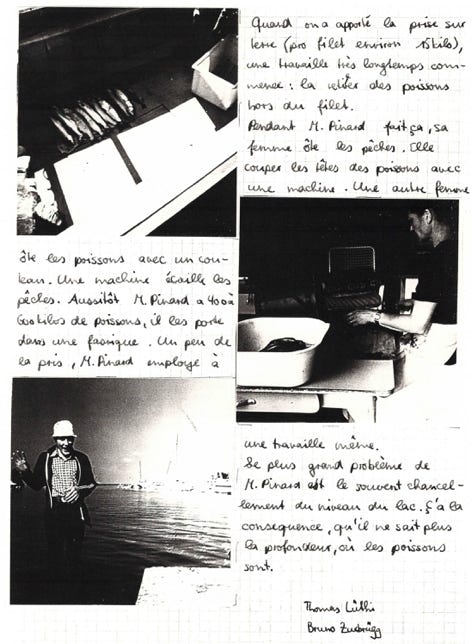 Quand on a apporté la prise sur
terre (pro filet environ 15 kils),
une travaille très longtemps com-
mence : la retirer des poissons
hors du filet.
Pendant M. Pinard fait ça, sa
femme ôte les pêches. Elle
couper les têtes des poissons avec
une machine. Une autre femme
ôte les poissons avec un cou-
teau. Une machine écaille les
pêches. Aussitôt M. Pinard a 400 à
600 kilos de poissons, il les porte
dans une fabrique. Un peu de
la pris, M. Pinard employé à
une travaille même.
Le plus grand problème de
M. Pinard est le souvent chancel-
lement du niveau du lac. Ç'a la
consequence, qu'il ne sait plus
la profondeur, où les poissons
sont.
Thomas Lüthi
Bruno Zurbrügg